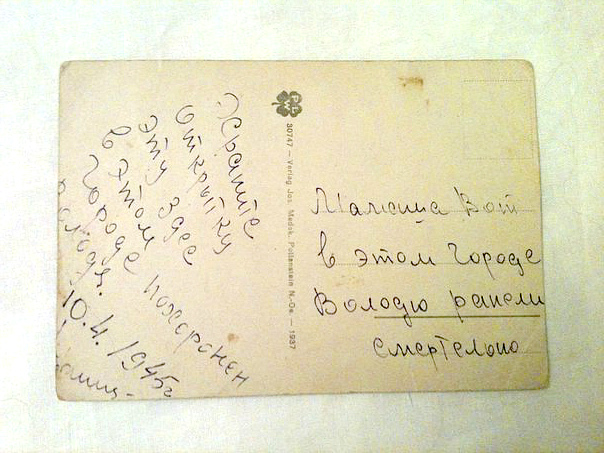 Храните
открытку
эту здес
в этом
городе похоронен
Володя.
10.4.1945г
30747 — Verlag Jos. N.-De. — 1937
Мамаша Вот
в этом городе
Володю ранели
смертельно